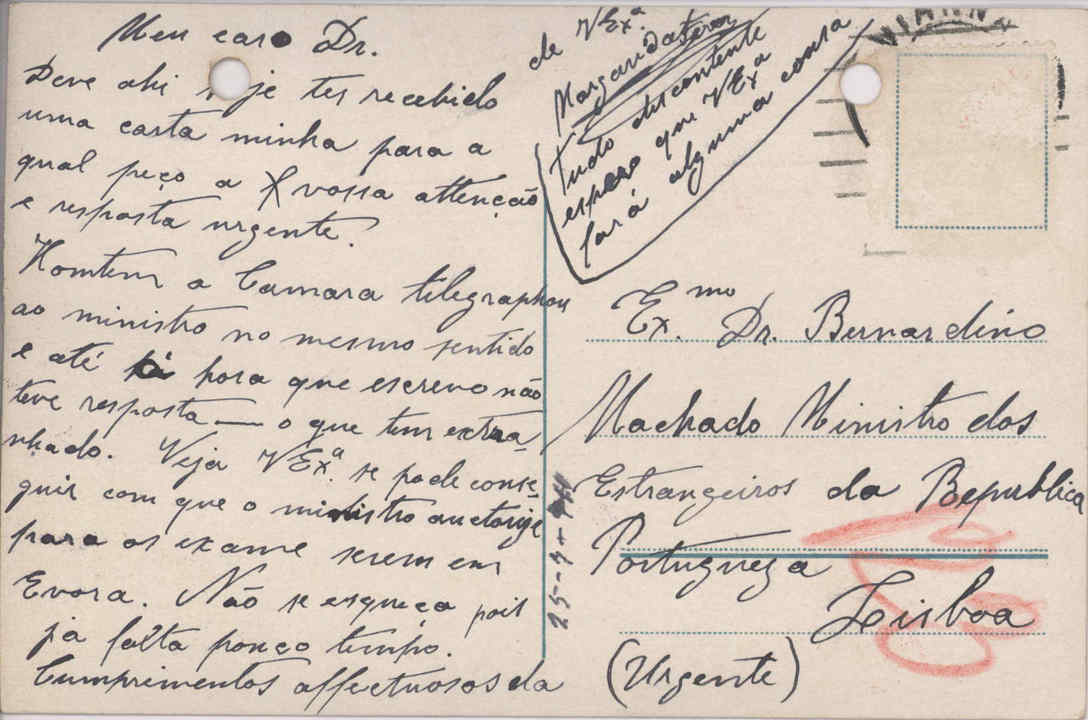 Meu caro Dr.
Deve ahi hoje ter recebido
uma carta minha para a
qual peço a vossa attenção
e resposta urgente.
Homtem a Camara telegraphou
ao ministro no mesmo sentido
e até á hora que escrevo não
teve resposta — o que tem extra
nhado. Veja VExª. se pode conse-
guir com que o ministro auctorise
para os exame serem em
Evora. Não se esqueça pois
já falta pouco tempo.
Cumprimentos affectuosos da
de VExª.
Margarida
Tudo descontente
espera que VExª
fará alguma cousa
Ex.mo Dr. Bernardino
Machado Ministro dos
Estrangeiros da Republica
Portugueza
Lisboa
(Urgente)